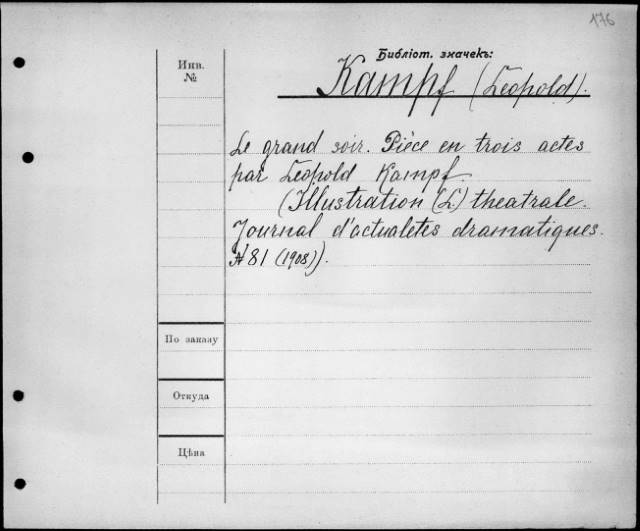 176
Инв.
№
Библіот. значекъ:
Kampf (Leopold).
Le grand soir. Pièce en trois actes
par Leopold Kampf.
(Illustration (L') theatrale.
Journal d'actualetes dramatiques.
№ 81 (1908)).
По заказу
Откуда
Цѣна